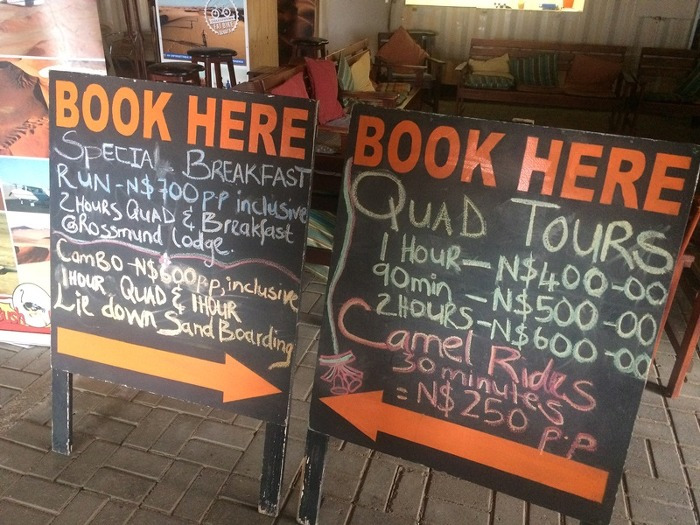 BOOK HERE
SPECIAL BREAKFAST
RUN - N$700 p.p inclusive
2 HOURS QUAD & Breakfast
@Rossmund Lodge.
ComBO - N$600 p.p, inclusive
1 HOUR QUAD & 1 HOUR
Lie down Sand Boarding
BOOK HERE
QUAD TOURS
1 HOUR - N$400-00
90min - N$500-00
2 HOURS - N$600-00
Camel Rides
30 minutes
= N$250 p.p